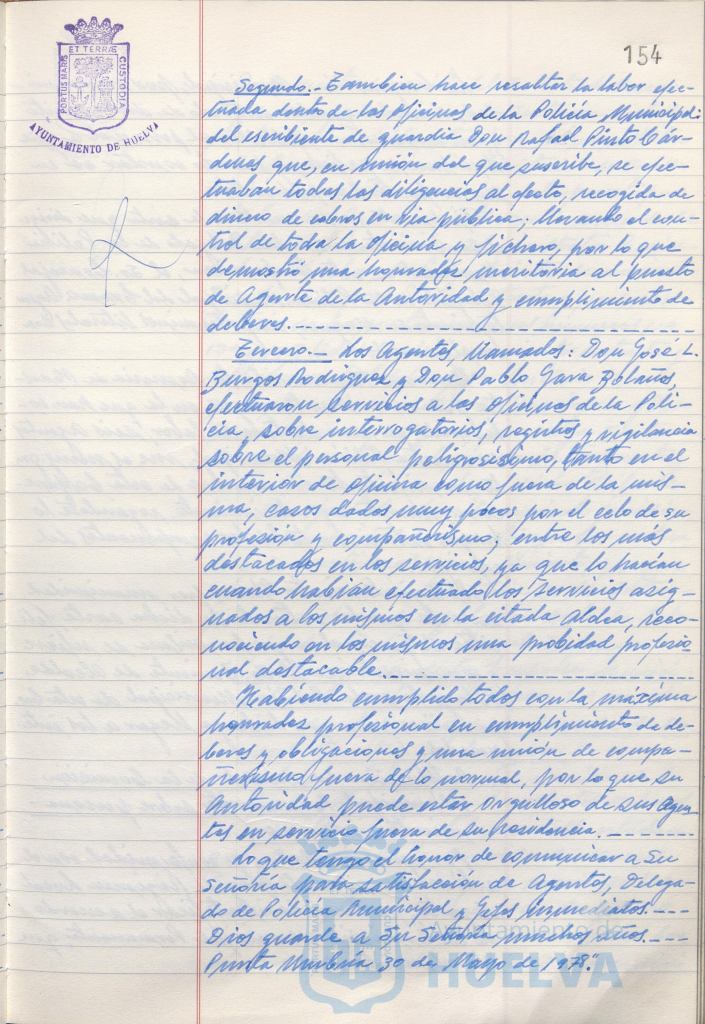 154
PORTUS MARIS ET TERRÆ CUSTODIA
AYUNTAMIENTO DE HUELVA
Segundo.- Tambien hace resaltar la labor efec-
tuada dentro de las oficinas de la Policía Municipal:
del escribiente de guardia Don Rafael Pinto Cár-
denas que, en unión del que suscribe, se efec-
tuaban todas las diligencias al efecto, recogida de
dinero de cobros en vía pública; llevando el con-
trol de toda la oficina y fichero, por lo que
demostró una honradez meritoria al puesto
de Agente de la Autoridad y cumplimiento de
deberes.
Tercero.- Los Agentes, llamados: Don José L.
Burgos Rodríguez y Don Pablo Gara Bolaños,
efectuaron servicios a las oficinas de la Poli-
cía, sobre interrogatorios, registros y vigilancia
sobre el personal peligrosísimo, tanto en el
interior de oficina como fuera de la mis-
ma, casos dados muy pocos por el celo de su
profesión y compañerismo, entre los más
destacados en los servicios, ya que lo hacían
cuando habían efectuado los servicios asig-
nados a los mismos en la citada aldea, reco-
nociendo en los mismos una probidad profesio-
nal destacable.
Habiendo cumplido todos con la máxima
honradez profesional en cumplimiento de de-
beres y obligaciones y una unión de compa-
ñerismo fuera de lo normal, por lo que su
Autoridad puede estar orgulloso de sus Agen-
tes en servicio fuera de su residencia.
Lo que tengo el honor de comunicar a Su
Señoría para satisfacción de Agentes, Delega-
do de Policía Municipal y Gefes inmediatos.
Dios guarde a Su Señoría muchos años.
Punta Umbría 30 de Mayo de 1978."
Ayuntamiento de
HUELVA